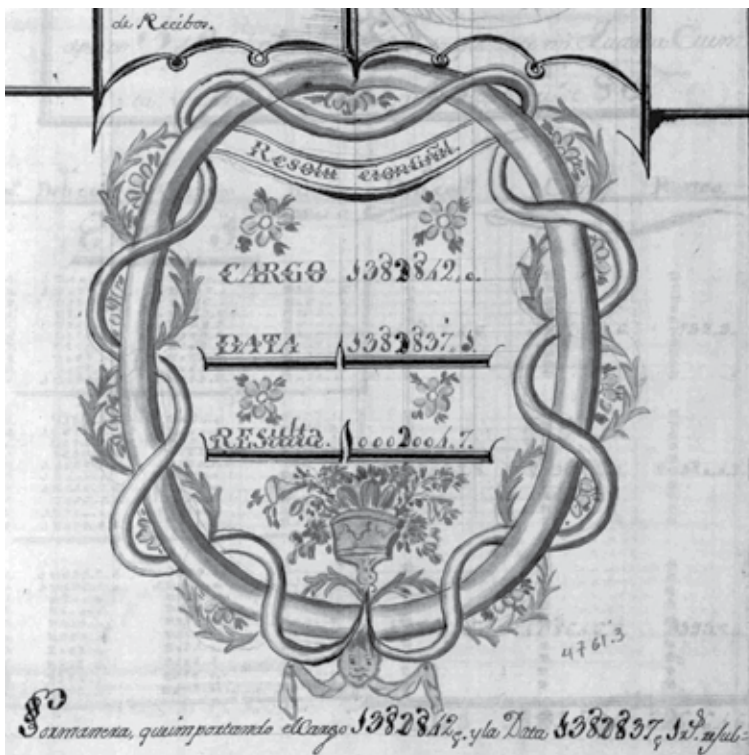 de Recibos.
Resolu cion Gñl.
CARGO 1382842.0.
DATA 1382837.1.
RESulta. 0002004.7.
4761.3
Pormanera, que importando el Cargo 1382842 p.s y la Data 1382837 p.s 1 r.l resul-